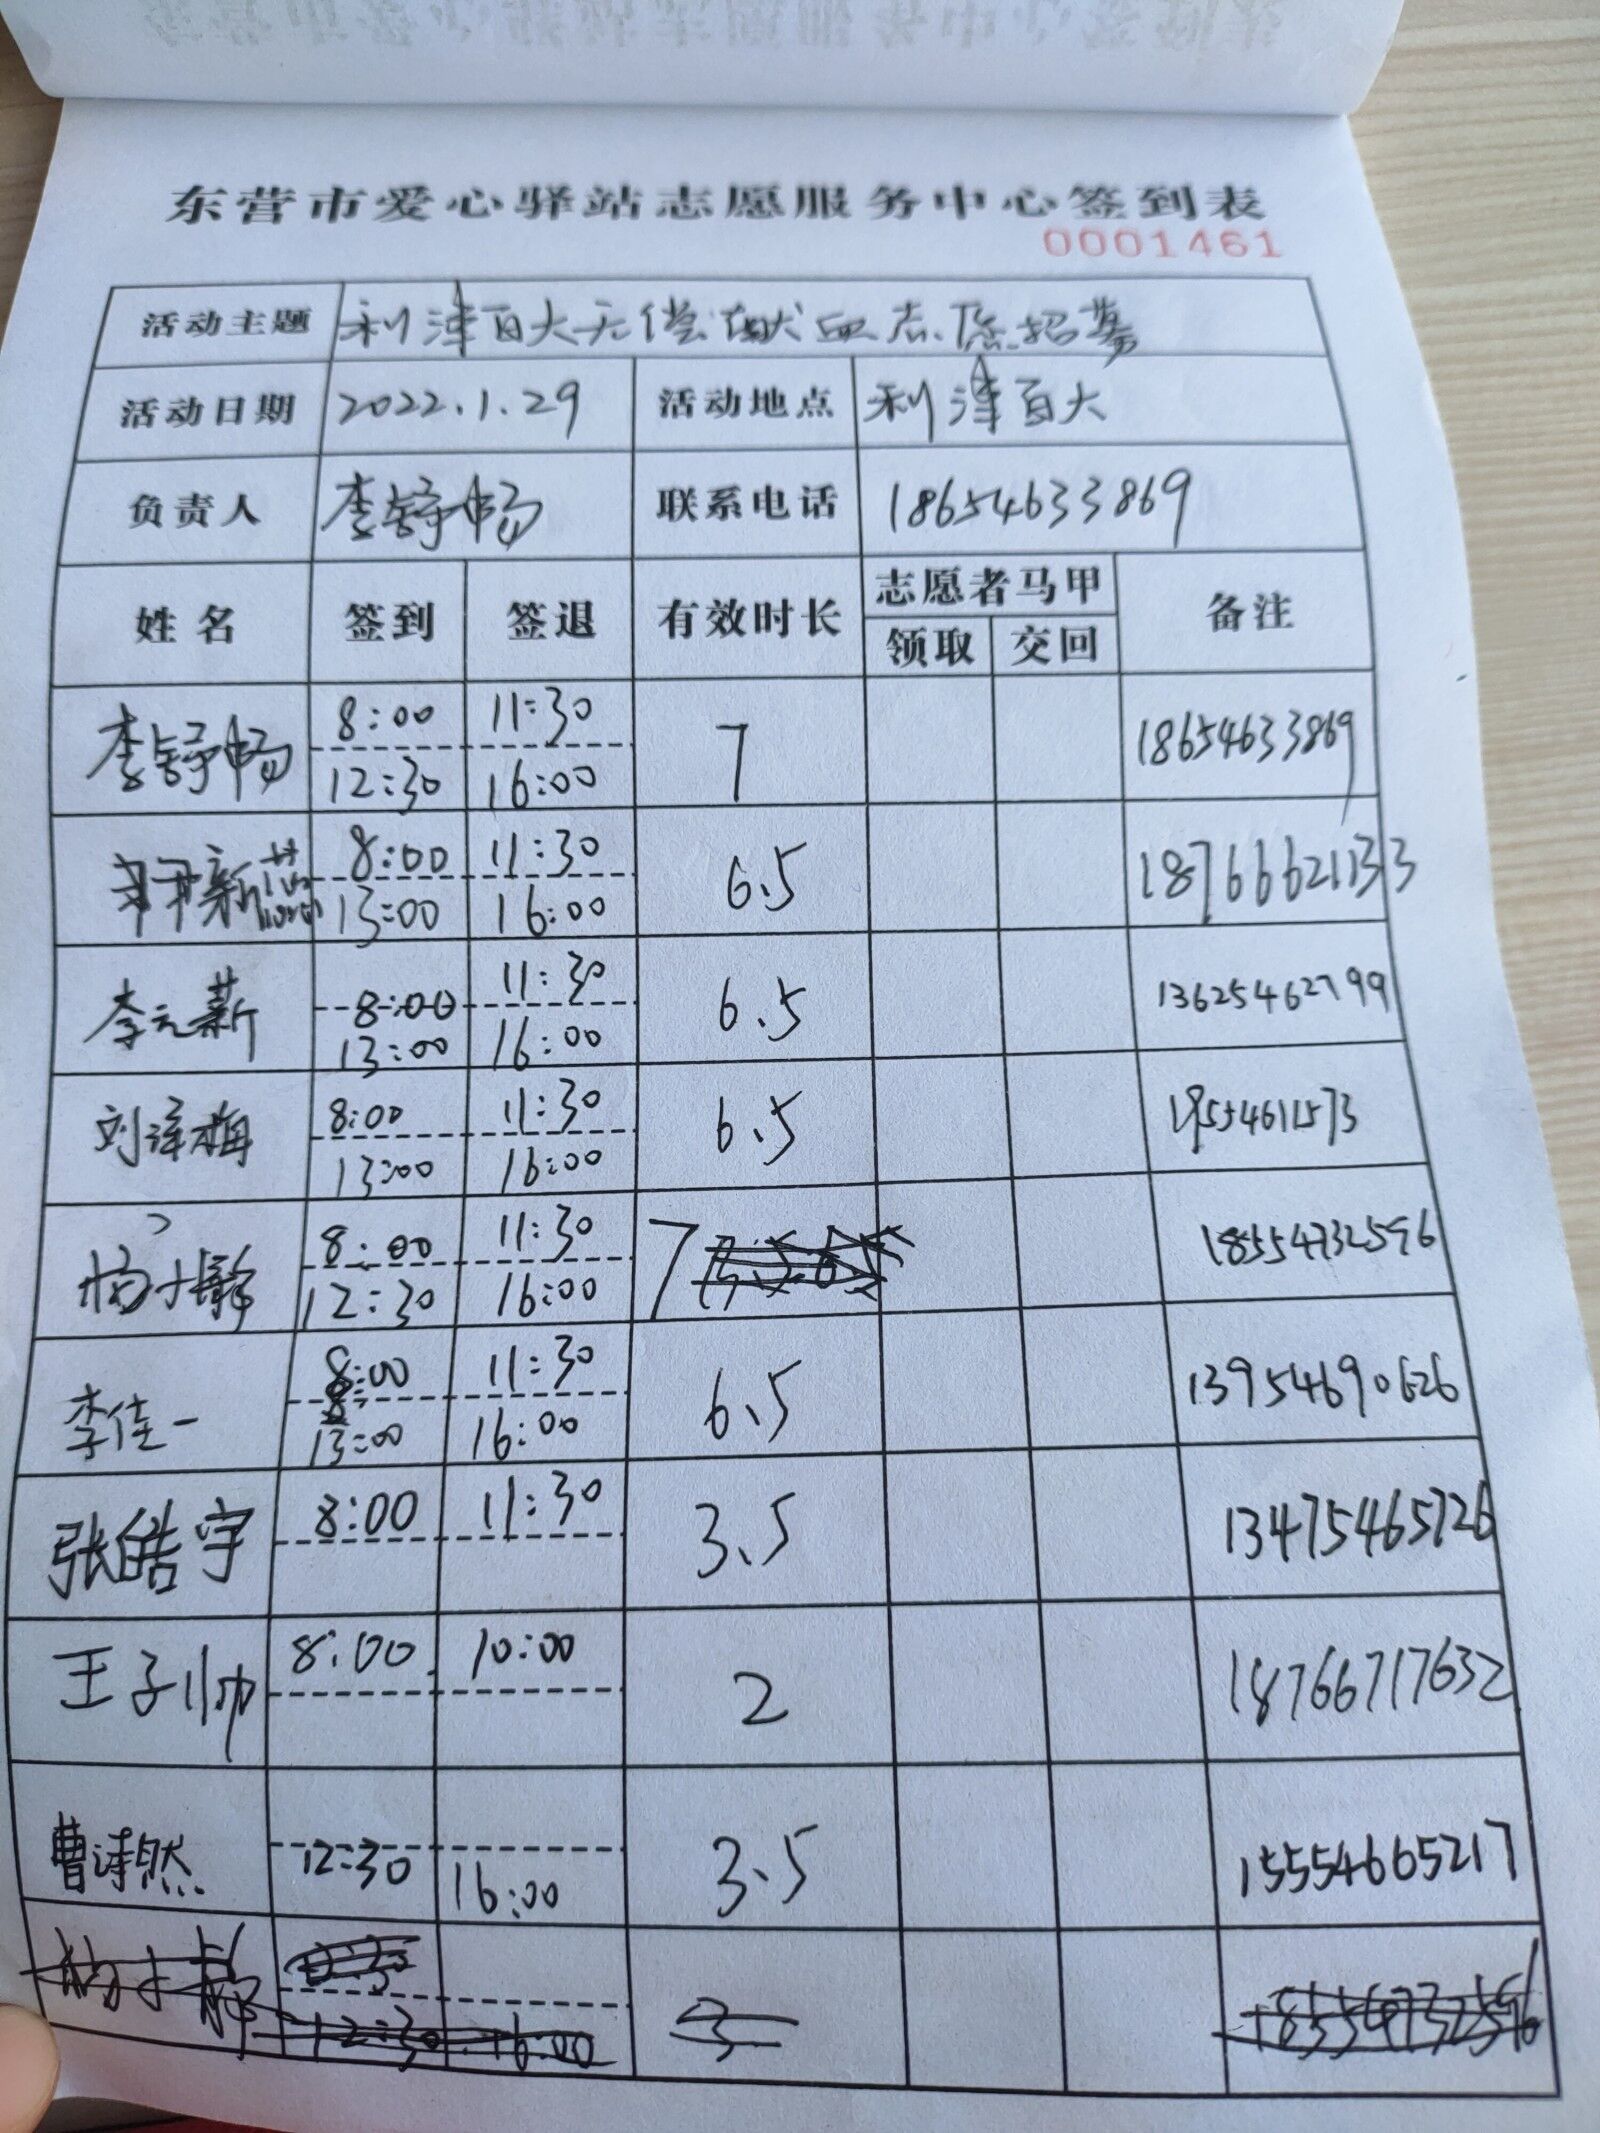 东营市爱心驿站志愿服务中心签到表
0001461
活动主题 利津百大无偿献血志愿招募
活动日期 2022.1.29 活动地点 利津百大
负责人 李舒畅 联系电话 18654633869
姓名 签到 签退 有效时长 志愿者马甲 备注
领取 交回
李舒畅 8:00 11:30 7 18654633869
12:30 16:00
8:00 11:30 6.5 18766621133
13:00 16:00
李元薪 8:00 11:30 6.5 13625462799
13:00 16:00
刘泽梅 8:00 11:30 6.5 18554611573
13:00 16:00
8:00 11:30 7 18554732596
12:30 16:00
李佳一 8:00 11:30 6.5 13954690626
13:00 16:00
张皓宇 8:00 11:30 3.5 13475465726
王子帅 8:00 10:00 2 18766717632
曹诗然 12:30 16:00 3.5 15554665217
12:30 16:00 3 18554732596